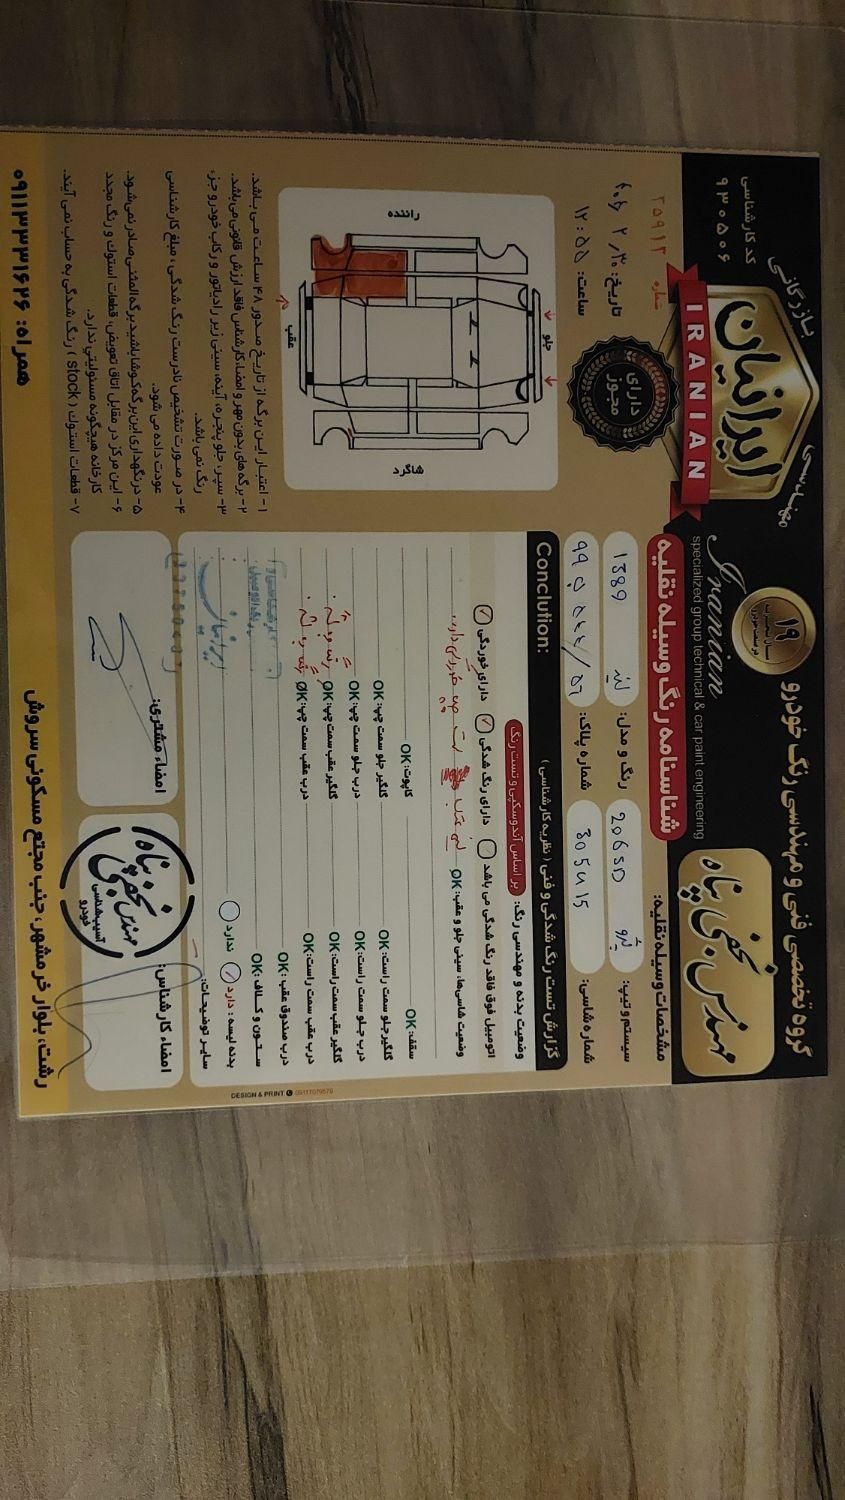 گروه تخصصی فنی و مهندسی رنگ خودرو
۱۹
مهندسی
بازرگانی
ایرانیان
IRANIAN
Iranian
specialized group technical & car paint engineering
مهندس نجفی پناه
کد کارشناسی
۹۳۰۵۰۶
شناسنامه رنگ وسیله نقلیه
شماره ۲۵۹۱۲
ساعت: ۱۲:۵۵
دارای مجوز
مشخصات وسیله نقلیه:
سیستم و تیپ: پژو 206 SD
رنگ و مدل: 1389
شماره شاسی: 305415
شماره پلاک:
گزارش تست رنگ شدگی و فنی ( نظریه کارشناسی )
Conclution:
وضعیت بدنه و مهندسی رنگ: بر اساس آندوسکپی و تست رنگ
اتومبیل فوق فاقد رنگ شدگی می باشد
دارای رنگ شدگی
دارای خوردگی
وضعیت شاسی‌ها، سینی جلو و عقب: OK
سقف: OK
کاپوت: OK
گلگیر جلو سمت راست: OK
گلگیر جلو سمت چپ: OK
درب جلو سمت راست: OK
درب جلو سمت چپ: OK
گلگیر عقب سمت راست: OK
گلگیر عقب سمت چپ: OK
درب عقب سمت راست: OK
درب عقب سمت چپ: OK
درب صندوق عقب: OK
ستون و کلاف: OK
بدنه لیسه: دارد ندارد
سایر توضیحات:
راننده
جلو
عقب
شاگرد
۱- اعتبار این برگه از تاریخ صدور ۴۸ ساعت می باشد.
۲- برگه های بدون مهر و امضاء کارشناس فاقد ارزش قانونی می‌باشد.
۳- سپر، جلو پنجره، آینه، سینی زیر رادیاتور و رکاب خودرو جزء رنگ نمی باشد.
۴- در صورت تشخیص نادرست رنگ شدگی، مبلغ کارشناسی عودت داده می شود.
۵- در نگهداری این برگه کوشا باشید برگه المثنی صادر نمی‌شود.
۶- این مرکز در مقابل اتاق تعویض، قطعات استوک و رنگ مجدد کارخانه هیچگونه مسئولیتی ندارد.
۷- قطعات استوک ( stock ) رنگ شدگی به حساب نمی آیند.
امضاء کارشناس:
امضاء مشتری:
مهندس نجفی پناه
آسیب‌شناسی خودرو
DESIGN & PRINT 09117079579
رشت، بلوار خرمشهر، جنب مجتمع مسکونی سروش
همراه: ۰۹۱۱۳۳۳۱۶۲۶